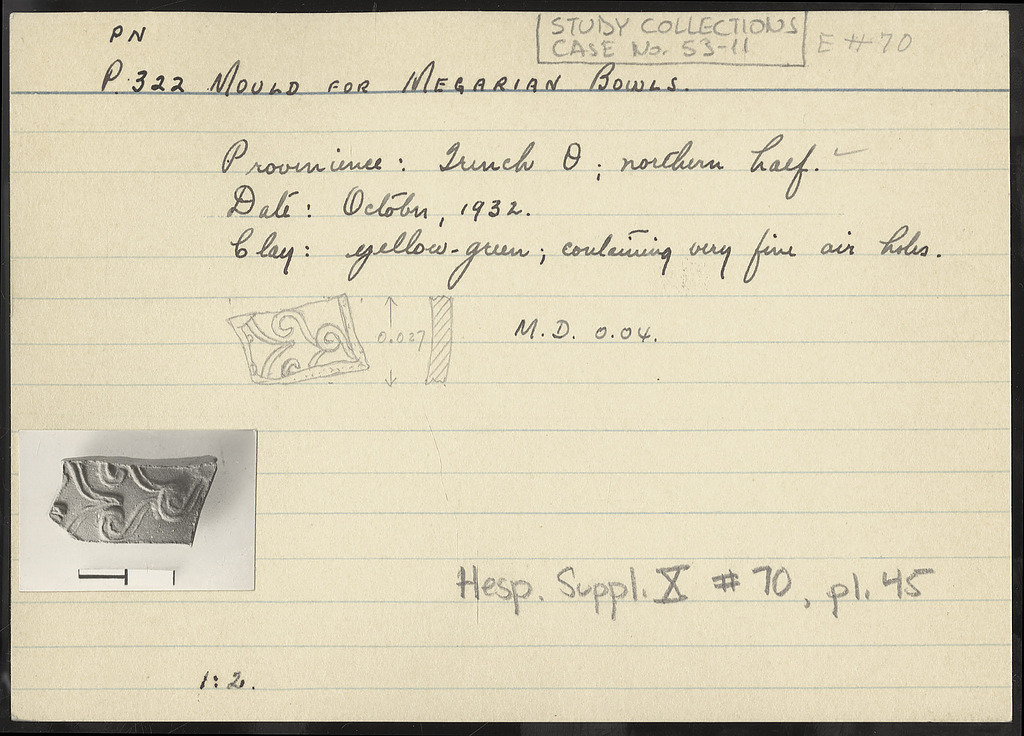 PN
STUDY COLLECTIONS
CASE No. 53-11
E #70
P. 322 MOULD FOR MEGARIAN BOWLS.
Provinience: Trench Θ; northern half.
Date: October, 1932.
Clay: yellow-green; containing very fine air holes.
0.027
M.D. 0.04.
Hesp. Suppl. X #70, pl. 45
1:2.